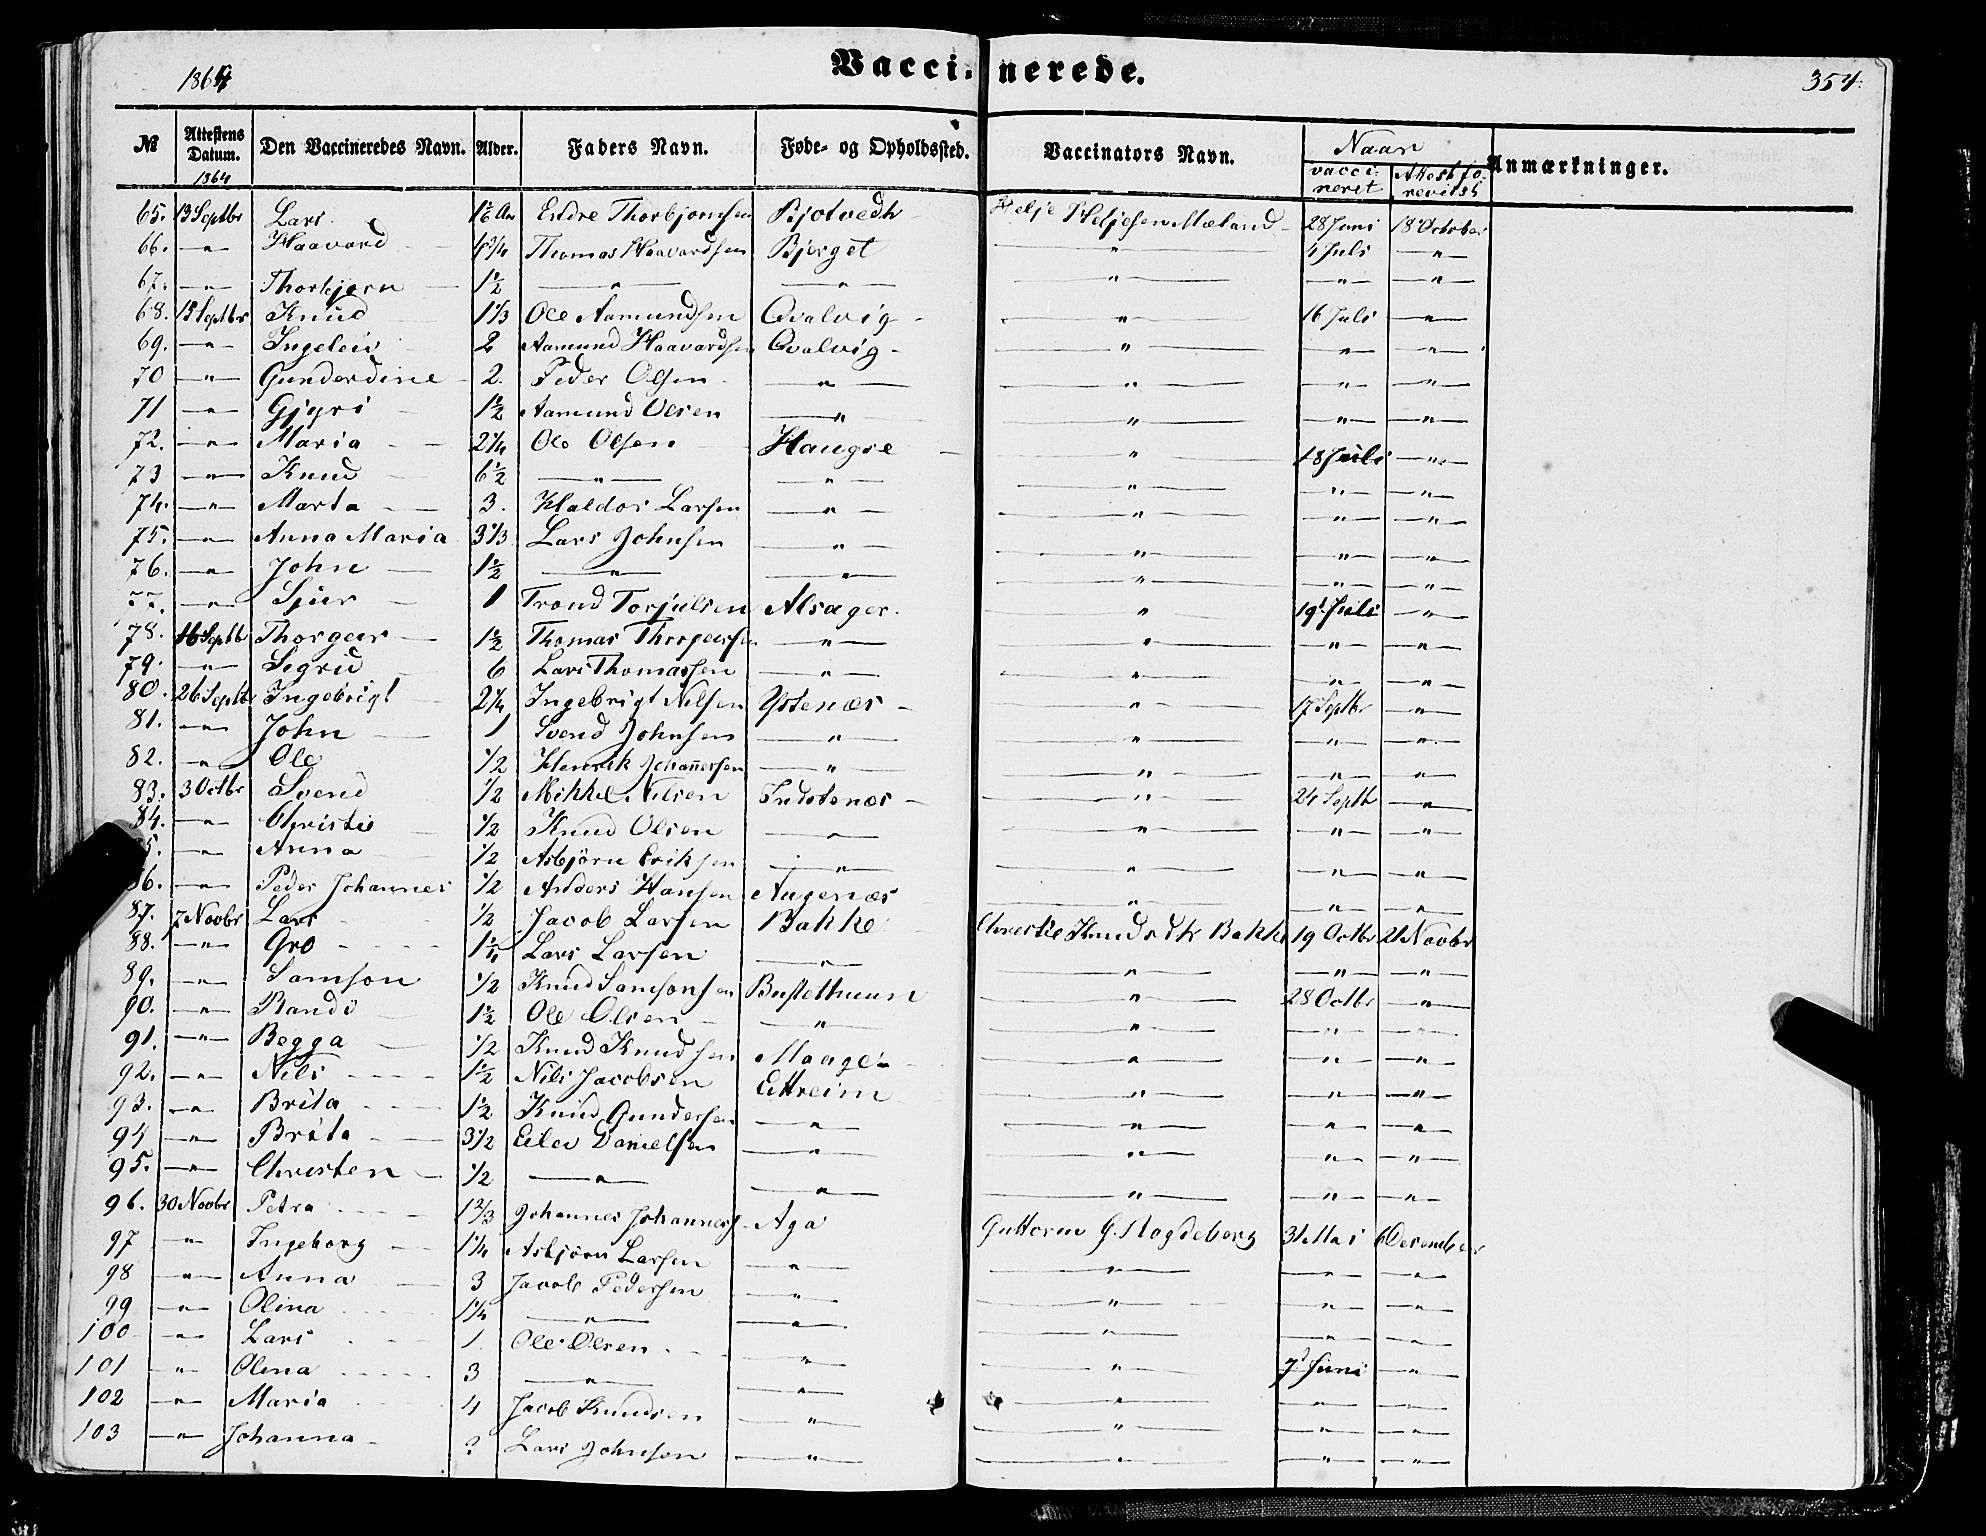 1864
Vaccinerede.
354.
№ Attestens Datum. 1864 Den Vaccineredes Navn. Alder. Faders Navn. Føde- og Opholdssted. Vaccinators Navn. Naar vaccineret Attest forevist Anmærkninger.
65. 13 Septbr Lars Endre Thorbjørnsen Bjotvedt Helje Heljesen Mæland 28 Juni 18 October
66. -"- Haavard 1 3/4 Thomas Haavardsen Bjerget -"- 4 Juli -"-
67. -"- Thorbjørn 1 1/2 -"- -"- -"- -"- -"-
68. 15 Septbr Knud 1 1/3 Ole Aamundsen Qvalvig -"- 16 Juli -"-
69. -"- Ingeleiv 2 Aamund Haavardsen Qvalvig -"- -"- -"-
70 -"- Gunderdine 2. Peder Olsen -"- -"- -"- -"-
71 -"- Gjyri 1 1/2 Aamund Olsen -"- -"- -"- -"-
72. -"- Maria 2 1/4 Ole Olsen Haugse -"- 18 Juli -"-
73 -"- Knud 6 1/2 -"- -"- -"- -"- -"-
74. -"- Marta 3. Haldor Larsen -"- -"- -"- -"-
75. -"- Anna Maria 3 1/3 Lars Johnsen -"- -"- -"- -"-
76. -"- John 1 1/2 -"- -"- -"- -"- -"-
77. -"- Sjur 1 Trond Torjulsen Alsager. -"- 19 Juli -"-
78. 16 Septb Thorgeir 1 1/2 Thomas Thorgeirsen -"- -"- -"- -"-
79. -"- Sigrid 6 Lars Thomassen -"- -"- -"- -"-
80. 26 Septb Ingebrigt 2 1/4 Ingebrigt Nilsen Ystenæs -"- 17 Septbr -"-
81. -"- John 1 Svend Johnsen -"- -"- -"- -"-
82. -"- Ole 1/2 Henrik Johannessen -"- -"- -"- -"-
83. 3 Octbr Svend 1/2 Mikkel Nilsen Indstenæs -"- 24 Septb -"-
84. -"- Christie 1/2 Knud Olsen -"- -"- -"- -"-
5. -"- Anna 1/2 Asbjørn Eriksen -"- -"- -"- -"-
86. -"- Peder Johannes 1/2 Anders Hansen Augenæs -"- -"- -"-
87. 7 Novbr Lars 1/2 Jacob Larsen Bakke Christie Knudsdtr Bakke 19 Octbr 21 Novbr
88. -"- Gro Lars Larsen -"- -"- -"- -"-
89. -"- Samson 1/2 Knud Samsonsen Bustethuun -"- 28 Octbr -"-
90. -"- Randi 1 1/2 Ole Olsen -"- -"- -"- -"-
91. -"- Begga 1/2 Knud Knudsen Maage -"- -"- -"-
92. -"- Nils 1 1/2 Nils Jacobsen Eitreim -"- -"- -"-
93. -"- Brita 1 1/2 Knud Gundersen -"- -"- -"- -"-
94 -"- Brita 3 1/2 Eilev Danielsen -"- -"- -"- -"-
95. -"- Christen 1/2 -"- -"- -"- -"- -"-
96. 30 Novbr Petra 1 2/3 Johannes Johanness. Aga Guttorm G. Magdeborg 31 Mai 6 December
97 -"- Ingeborg 1 1/4 Asbjørn Larsen -"- -"- -"- -"-
98 -"- Anna 3 Jacob Pedersen -"- -"- -"- -"-
99 -"- Olina 1 1/4 -"- -"- -"- -"- -"-
100 -"- Lars 1. Ole Olsen -"- -"- 7 Juni -"-
101 -"- Olina 3 -"- -"- -"- -"- -"-
102 -"- Maria 4 Jacob Knudsen -"- -"- -"- -"-
103 -"- Johanna ? Lars Johnsen -"- -"- -"- -"-